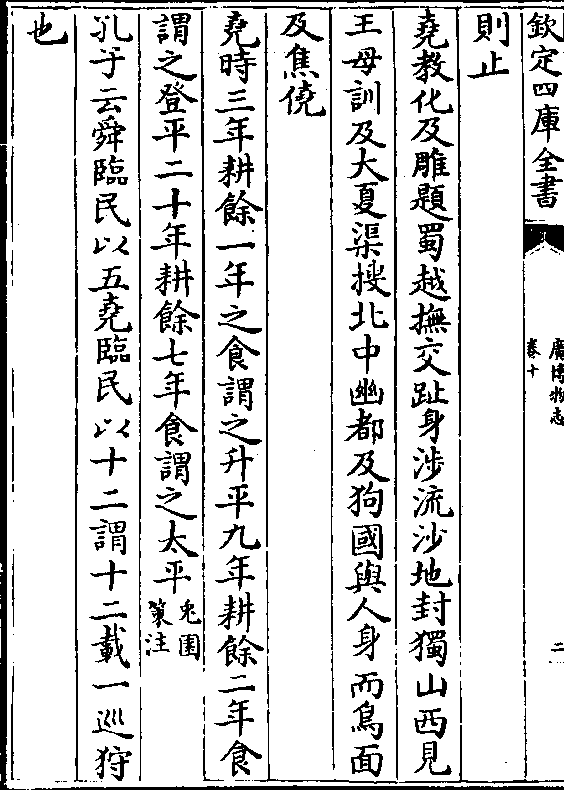 欽定四庫全書
廣博物志
卷十
二
則止
堯教化及雕題蜀越撫交趾身涉流沙地封獨山西見
王母訓及大夏渠搜北中幽都及狗國與人身而鳥面
及焦僥
堯時三年耕餘一年之食謂之升平九年耕餘二年食
謂之登平二十年耕餘七年食謂之太平兎園
策注
孔子云舜臨民以五堯臨民以十二謂十二載一巡狩
也